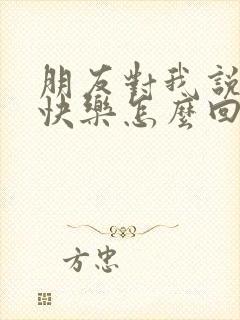 朋友對我說
快樂怎麼回
方忠